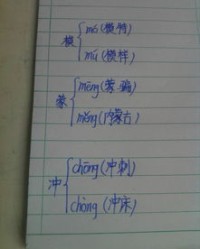 mó(模特)
模
mú(模样)
mēng(蒙骗)
蒙
měng(内蒙古)
chōng(冲刺)
冲
chòng(冲床)